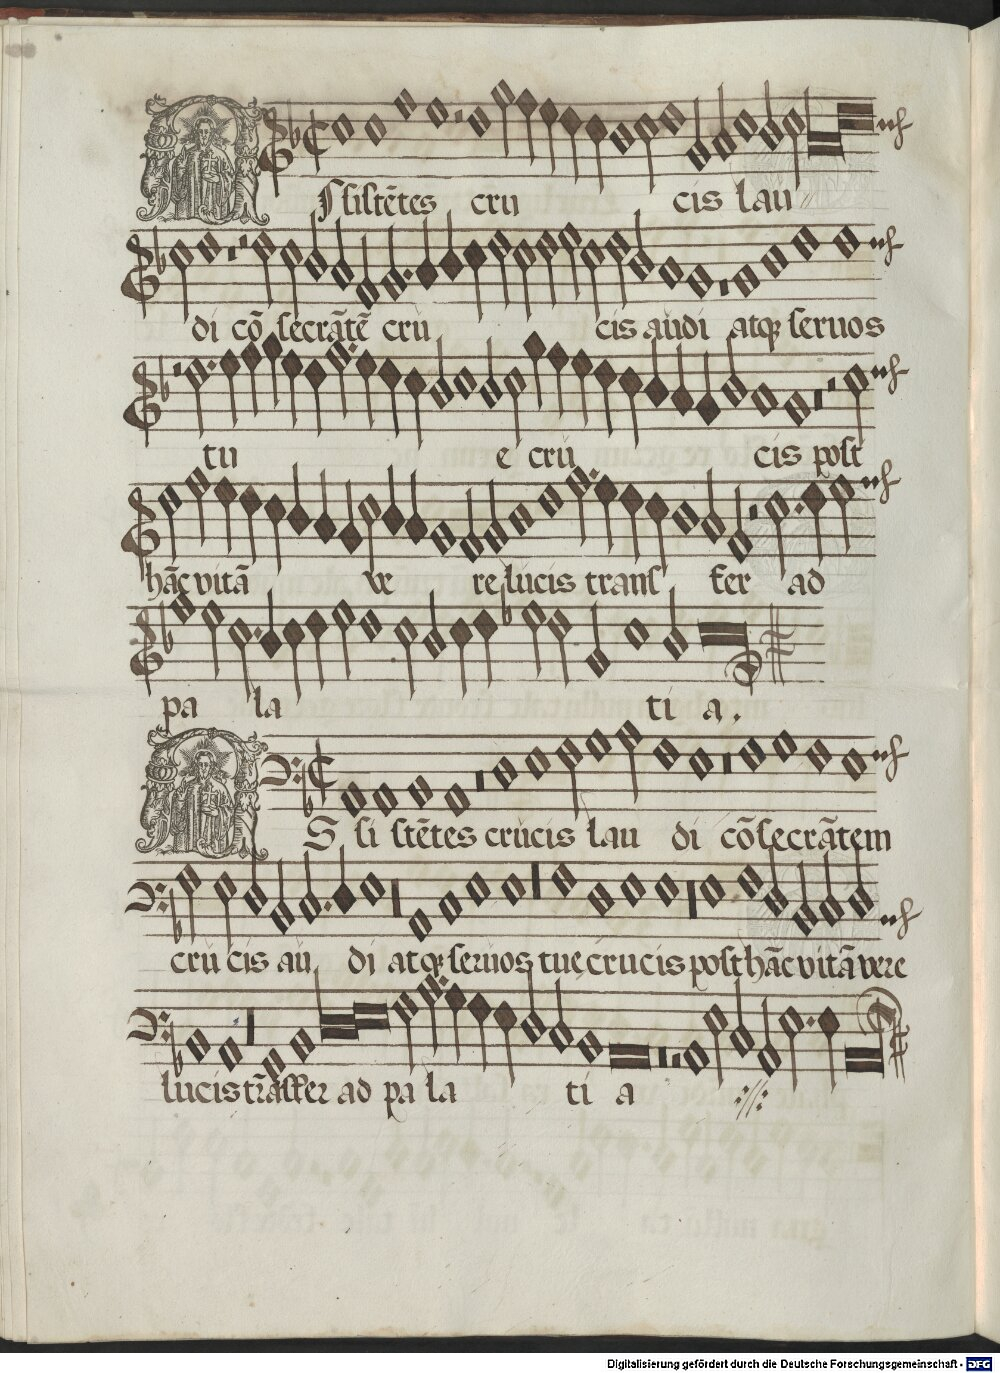 Assistētes cru cis lau
di cō secrātē cru cis audi atq₃ seruos
tu e cru cis post
hāc vitā ve re lucis transf fer ad
pa la ti a.
AS si stētes crucis lau di cōsecrātem
cru cis au di atq₃ seruos tuę crucis post hāc vitā vere
lucis trāsfer ad pa la ti a
Digitalisierung gefördert durch die Deutsche Forschungsgemeinschaft - DFG